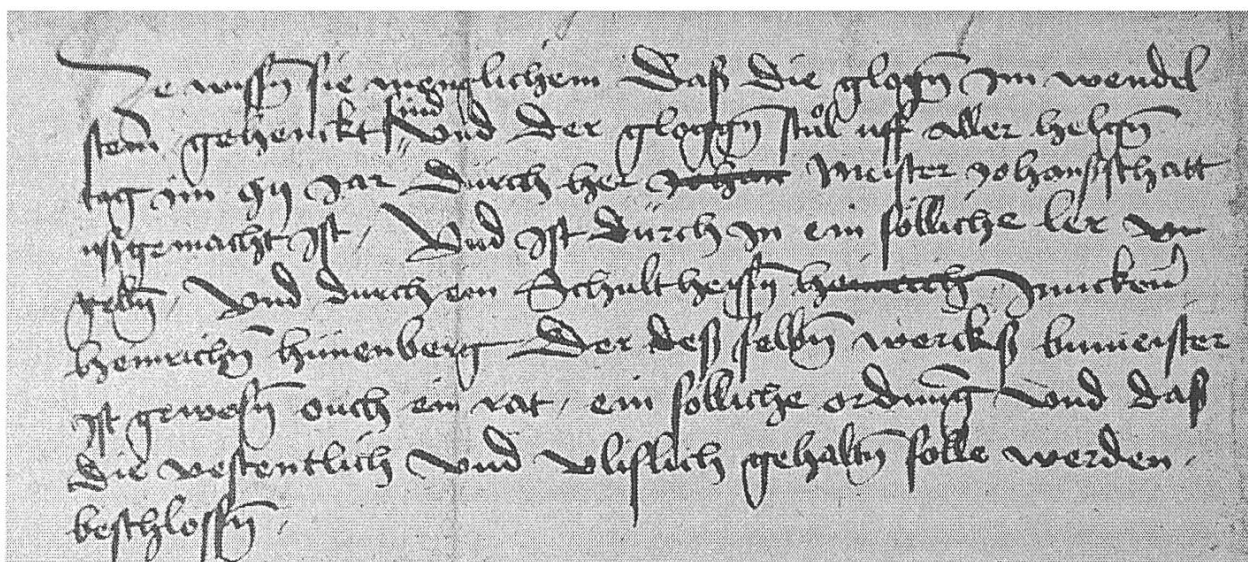 Ze wissen sie menglichem daß die glogen Im wendel
stein gehenckt sind Und der gloggen stůl uff aller helgen
tag im Jar durch her Johan Meister Johanß schatt
ußgemacht ist, Und ist durch In ein sölliche ler
geben, Und durch ein Schultheissen heinrich Juncker
heinrichen hünenberg Der deß selben wercks bumeister
ist gewesen ouch ein rat, ein sölliche ordnung Und daß
die vestentlich Und vlislich gehalten sölle werden,
beschlossen,